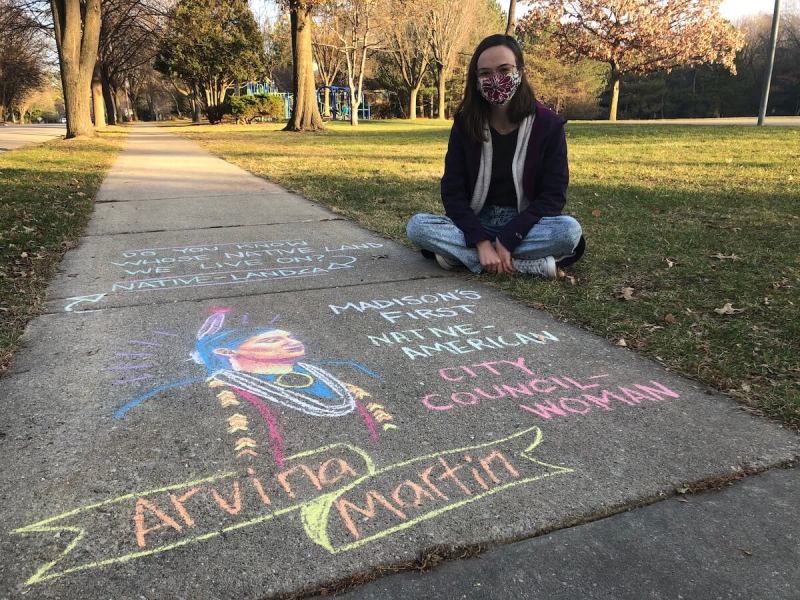 DO YOU KNOW
WHOSE NATIVE LAND
WE LIVE ON?
NATIVE-LAND.CA
MADISON'S
FIRST
NATIVE-
AMERICAN
CITY
COUNCIL-
WOMAN
Arvina
Martin